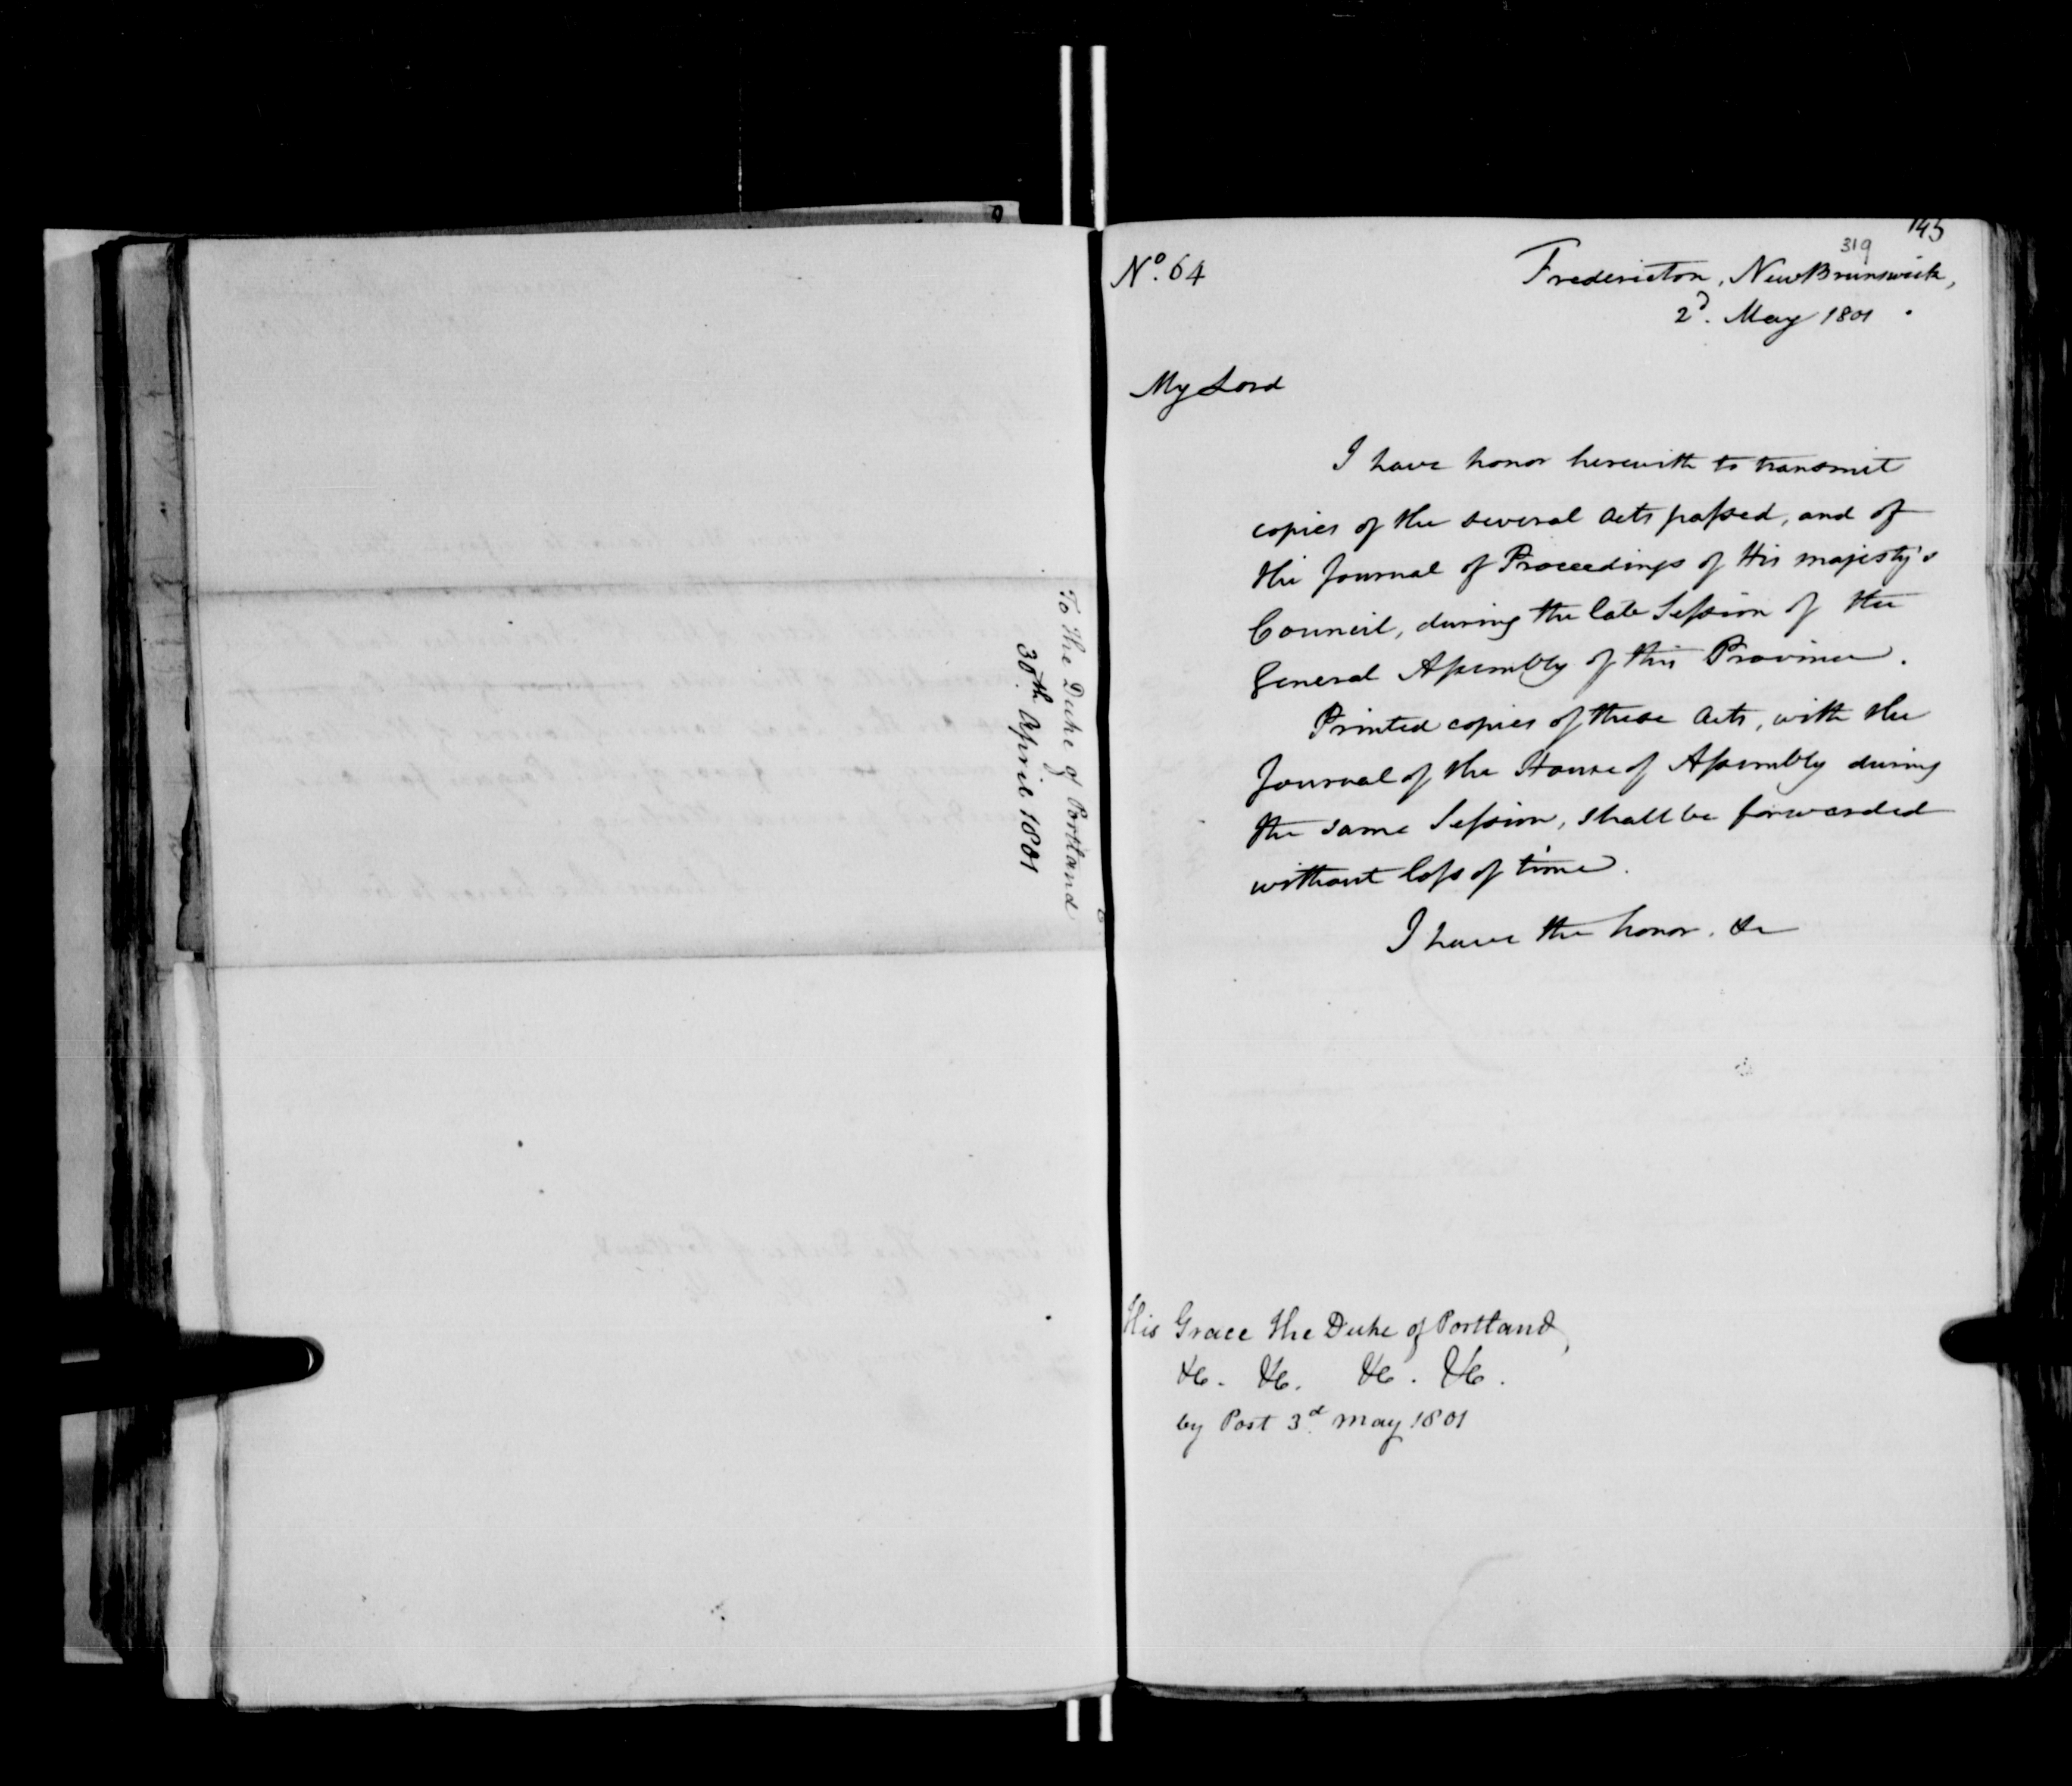 To the Duke of Portland
30th April 1801
145
319
No. 64
Fredericton, New Brunswick,
2d. May 1801.
My Lord
I have honor herewith to transmit
copies of the several Acts passed, and of
the Journal of Proceedings of His Majesty's
Council, during the late Session of the
General Assembly of this Province.
Printed copies of these Acts, with the
Journal of the House of Assembly during
the same Session, shall be forwarded
without loss of time.
I have the honor. &c
His Grace the Duke of Portland,
&c. &c. &c. &c.
by Post 3d. May 1801